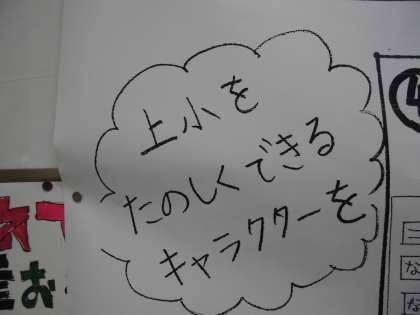 上小を
たのしくできる
キャラクターを
お
三
な
な